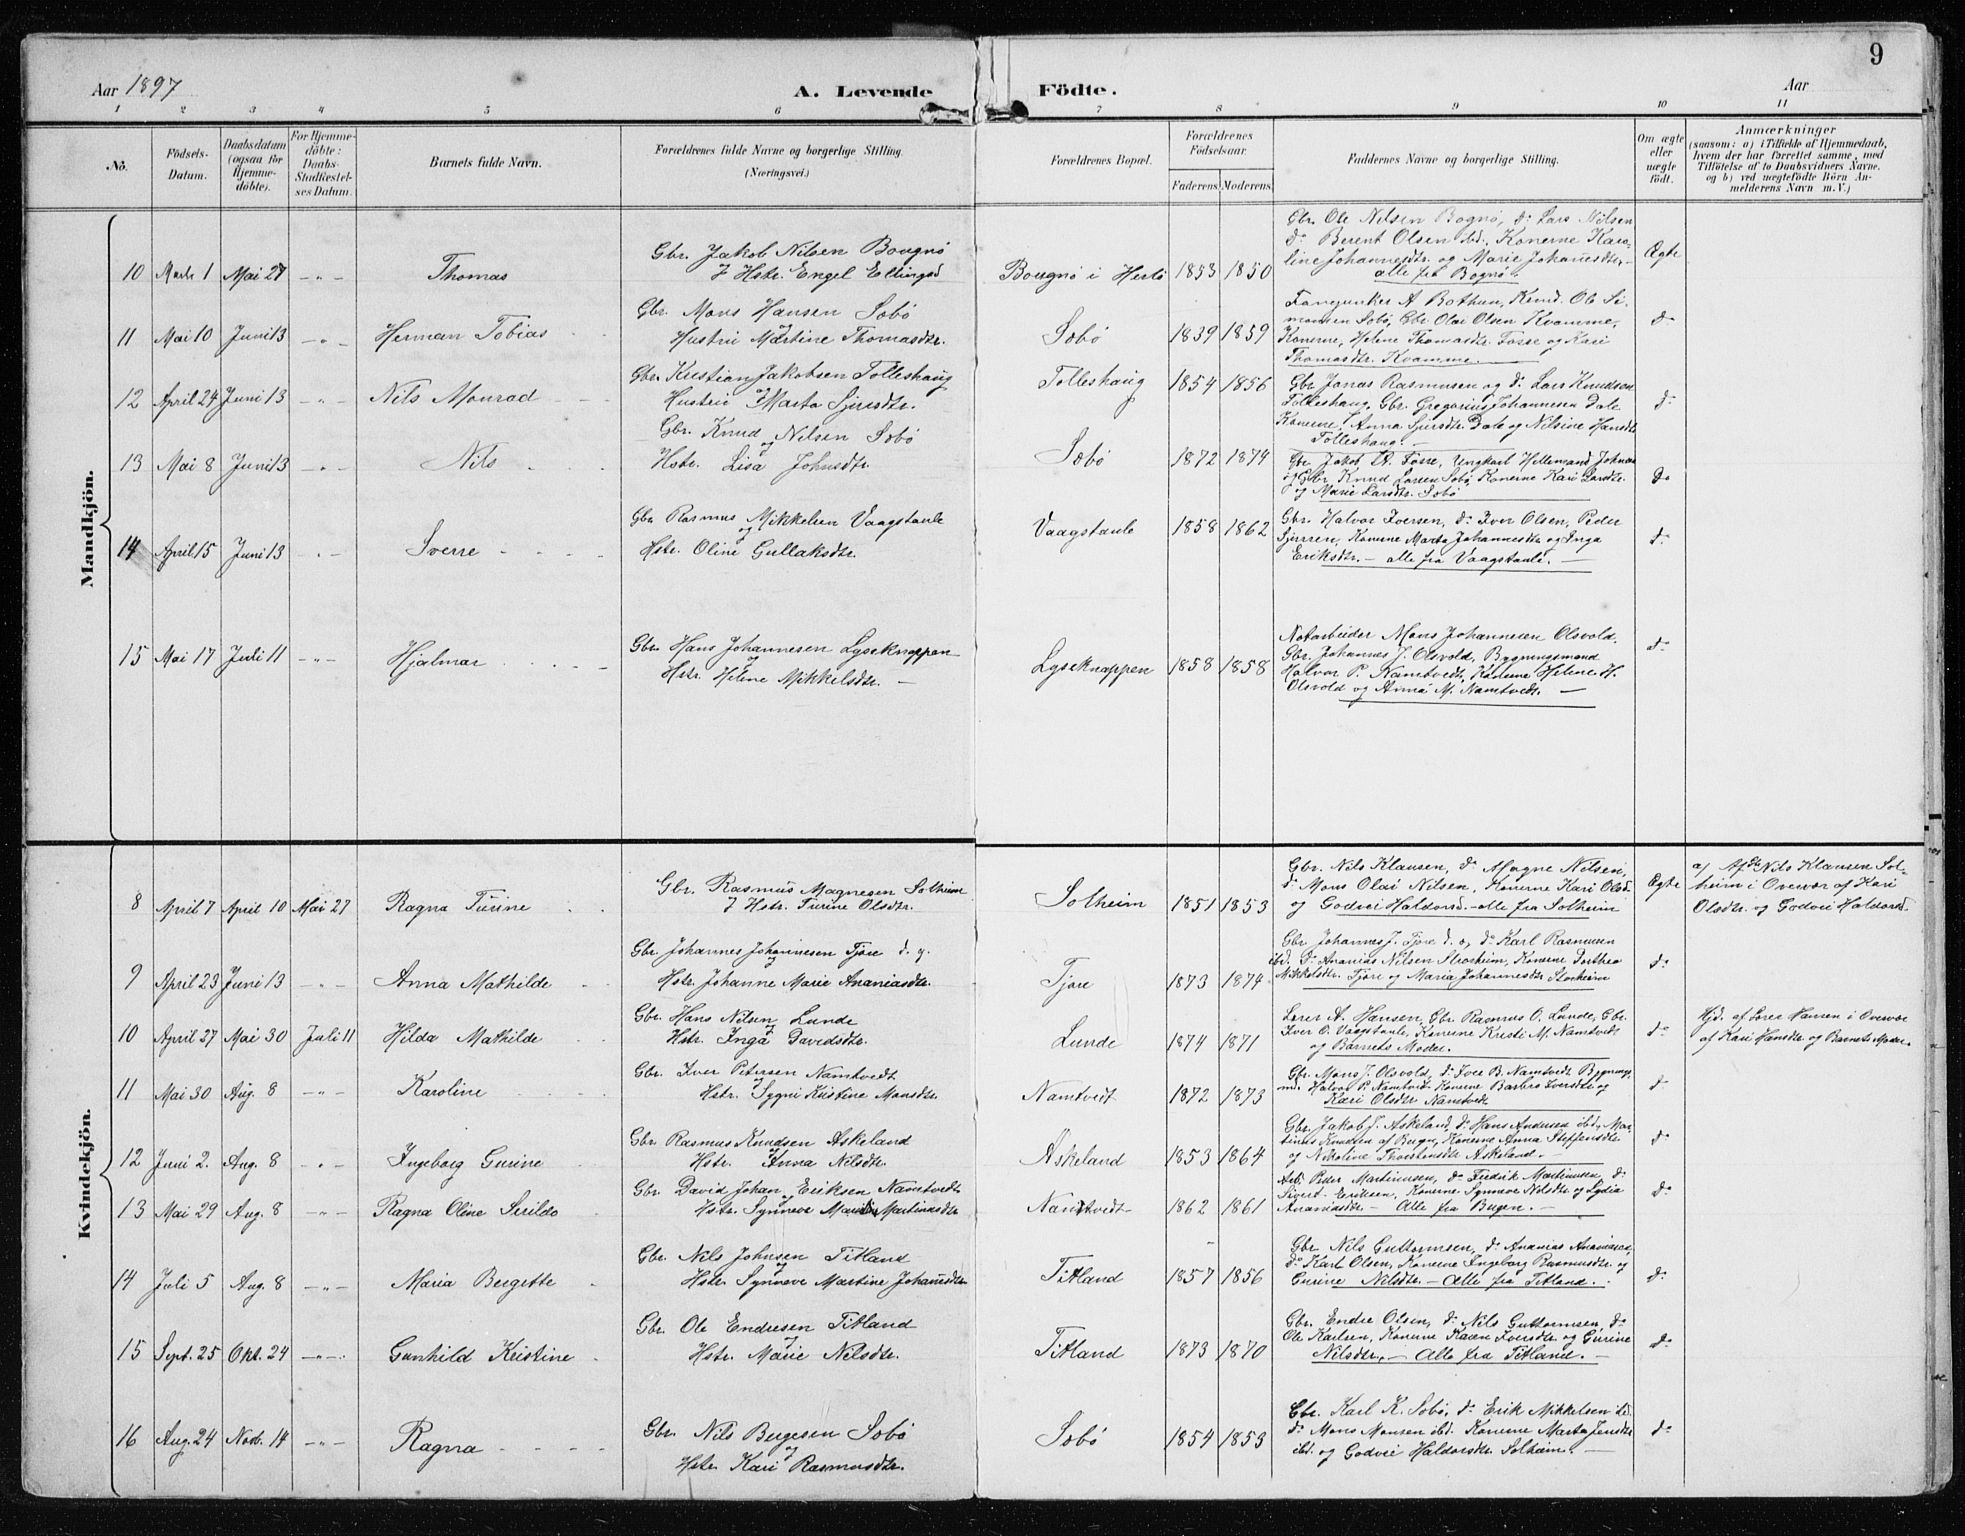 Aar 1897
A. Levende
Födte.
Aar
9
1 2 3 4 5 6 7 8 9 10 11
No.
Födsels-
Datum.
Daabsdatum
(ogsaa for
Hjemme-
döbte).
For Hjemme-
döbte:
Daabs-
Stadfæstel-
ses Datum.
Barnets fulde Navn.
Forældrenes fulde Navne og borgerlige Stilling.
(Næringsvei.)
Forældrenes Bopæl.
Forældrenes
Födselsaar.
Faderens. Moderens.
Faddernes Navne og borgerlige Stilling.
Om ægte
eller
uægte
födt.
Anmærkninger
(saasom: a) i Tilfælde af Hjemmedaab,
hvem der har forrettet samme, med
Tilföielse af to Daabsvidners Navne.
og b) ved uægtefödte Börn An-
melderens Navn m. V.)
Mandkjön.
10 Marts 1 Mai 27 -"- Thomas
Gbr. Jakob Nilsen Bougnö
Hstr. Engel Ellingsd
Bougnö i Herlö 1853 1850
Gbr. Ole Nilsen Bognö, do Lars Nilsen
do Berent Olsen ibd., Konerne Karo-
line Johannesdtr. og Marie Johanesdtr.-
alle fra Bognö.
Ægte
11 Mai 10 Juni 13 -"- Herman Tobias
Gbr. Mons Hansen Söbö
Hustru Martine Thomasdtr.
Söbö 1839 1859
Fanejunker A Bothun, Ole Si-
monsen Söbö, Gbr Olai Olsen Kvamme,
Konerne, Helene Thomasdtr Fosse og Kari
Thomasdtr. Kvamme.
do
12 April 24 Juni 13 -"- Nils Monrad
Gbr. Kristian Jakobsen Tolleshaug
Hustru Marta Sjursdtr.
Tolleshaug 1854 1856
Gbr Jonas Rasmusen og do Lars Knudsen
Tolleshaug, Gbr. Gregorius Johannesen Dale
Konerne, Anna Sjursdtr. Dale og Nilsine Hansdtr
Tolleshaug. -
do
13 Mai 8 Juni 13 -"- Nils
Gbr. Knud Nilsen Söbö
og
Hstr. Lisa Johnsdtr.
Söbö 1872 1874
Gbr. Jakob A. Fosse, Ungkarl Johnsen
Gbr. Knud Larsen Söbö, Konerne Kari Larsdtr.
og Marie Larsdtr. Söbö
do
14 April 15 Juni 13 -"- Sverre
Gbr Rasmus Mikkelsen Vaagstaule
og
Hstr. Oline Gullaksdtr.
Vaagstaule 1858 1862
Gbr. Halvor Iversen, do Iver Olsen, Peder
Konerne Marta Johannesdtr og Inga
Eriksdtr. - alle fra Vaagstaule. -
do
15 Mai 17 Juli 11 -"- Hjalmar
Gbr. Hans Johannesen Lyseknappen
og
Hstr. Helene Mikkelsdtr. -
Lyseknappen 1858 1858
Notarbeider Mons Johannesen Olsvold.
Gbr. Johannes J. Olsvold, Bygningsmand
Halvor P. Namtvedt, Konerne Helene H.
Olsvold og Anna M. Namtvedt. -
do
Kvindekjön.
8 April 7 April 10 Mai 27 Ragna Turine
Gbr. Rasmus Magnesen Solheim
Hstr. Turine Olsdtr.
Solheim 1851 1853
Gbr. Nils Klausen, do Magne Nilsen,
do Mons Olai Nilsen, Konerne Kari Olsd.
og Godvei Haldorsd. - alle fra Solheim
Ægte
a) Af Gbr Nils Klausen Sol-
heim i Overvær af Kari
Olsdtr. og Godvei Haldorsd.
9 April 23 Juni 13 -"- Anna Mathilde
Gbr Johannes Johannesen Tjore d. y.
og
Hstr. Johanne Marie Ananiasdtr.
Tjore 1873 1874
Gbr Johannes J. Tjore d. o, do Karl Rasmusen
ibd. do Ananias Nilsen Storheim, Konerne Dorthea
Mikkelsdtr. Tjore og Maria Johannesdtr Storheim
do
10 April 27 Mai 30 Juli 11 Hilda Mathilde
Gbr. Hans Nilsen Lunde
Hstr. Inga Davidsdtr.
Lunde 1874 1871
Lærer A. Hansen, Gbr. Rasmus O. Lunde, Gbr.
Iver O. Vaagstaule, Konerne Kristi M. Namtvedt
og Barnets Moder.
do
Hjd. af Lærer Hansen i Overvær
af Kari Hansdtr og Barnets Moder.
11 Mai 30 Aug. 8 -"- Karoline
Gbr. Iver Petersen Namtvedt
og
Hstr. Sygni Kristine Monsdtr.
Namtvedt 1872 1873
Gbr. Mons J. Olsvold, do Iver B. Namtvedt Bygnings
md. Halvor P. Namtvedt. Konerne Barbro Iversdtr og
Kari Olsdtr Namtvedt
do
12 Juni 2. Aug. 8 -"- Ingeborg Gurine
Gbr. Rasmus Knudsen Askeland
og
Hstr. Anna Nilsdtr.
Askeland 1853 1864
Gbr. Jakob J. Askeland, do Hans Andersen ibd. Mar-
tinus Knudsen af Bergn, Konerne Anna Steffensdtr
og Nikoline Thorstensdtr Askeland. -
do
13 Mai 29 Aug. 8 -"- Ragna Oline Serildo
Gbr. David Johan Eriksen Namtvedt
Hstr. Synneve Martinusdtr
Namtvedt 1862 1861
Arb. Peder Martinusen, do Fredrik Martinusen, do
Sivert Eriksen, Konerne Synneve Nilsdtr og Lydia
Ananiasdtr - Alle fra Bergen. -
do
14 Juli 5 Aug. 8 -"- Maria Bergitte
Gbr. Nils Johnsen Titland
og
Hstr. Synneve Martine Johansdtr
Titland 1857 1856
Gbr Nils Guttormsen, do Ananias Ananiasen,
do Karl Olsen, Konerne Ingeborg Rasmusdtr og
Gurine Nilsdtr. - Alle fra Titland.
do
15 Sept. 25 Okt. 24 -"- Gunhild Kristine
Gbr. Ole Endresen Titland
Hstr. Marie Nilsdtr.
Titland 1873 1870
Gbr. Endre Olsen, do Nils Guttormsen, do
Ole Karlsen, Konerne Karen Iversdtr og Gurine
Nilsdtr, - Alle fra Titland. -
do
16 Aug. 24 Novb. 14 -"- Ragna
Gbr. Nils Bergesen Söbö
og
Hstr. Kari Rasmusdtr.
Söbö 1854 1853
Gbr. Karl K. Söbö, do Erik Mikkelsen ibd.
do Mons Monsen ibd. Konerne Marta Jensdtr
ibd. og Godvei Haldorsdtr. Solheim. -
do